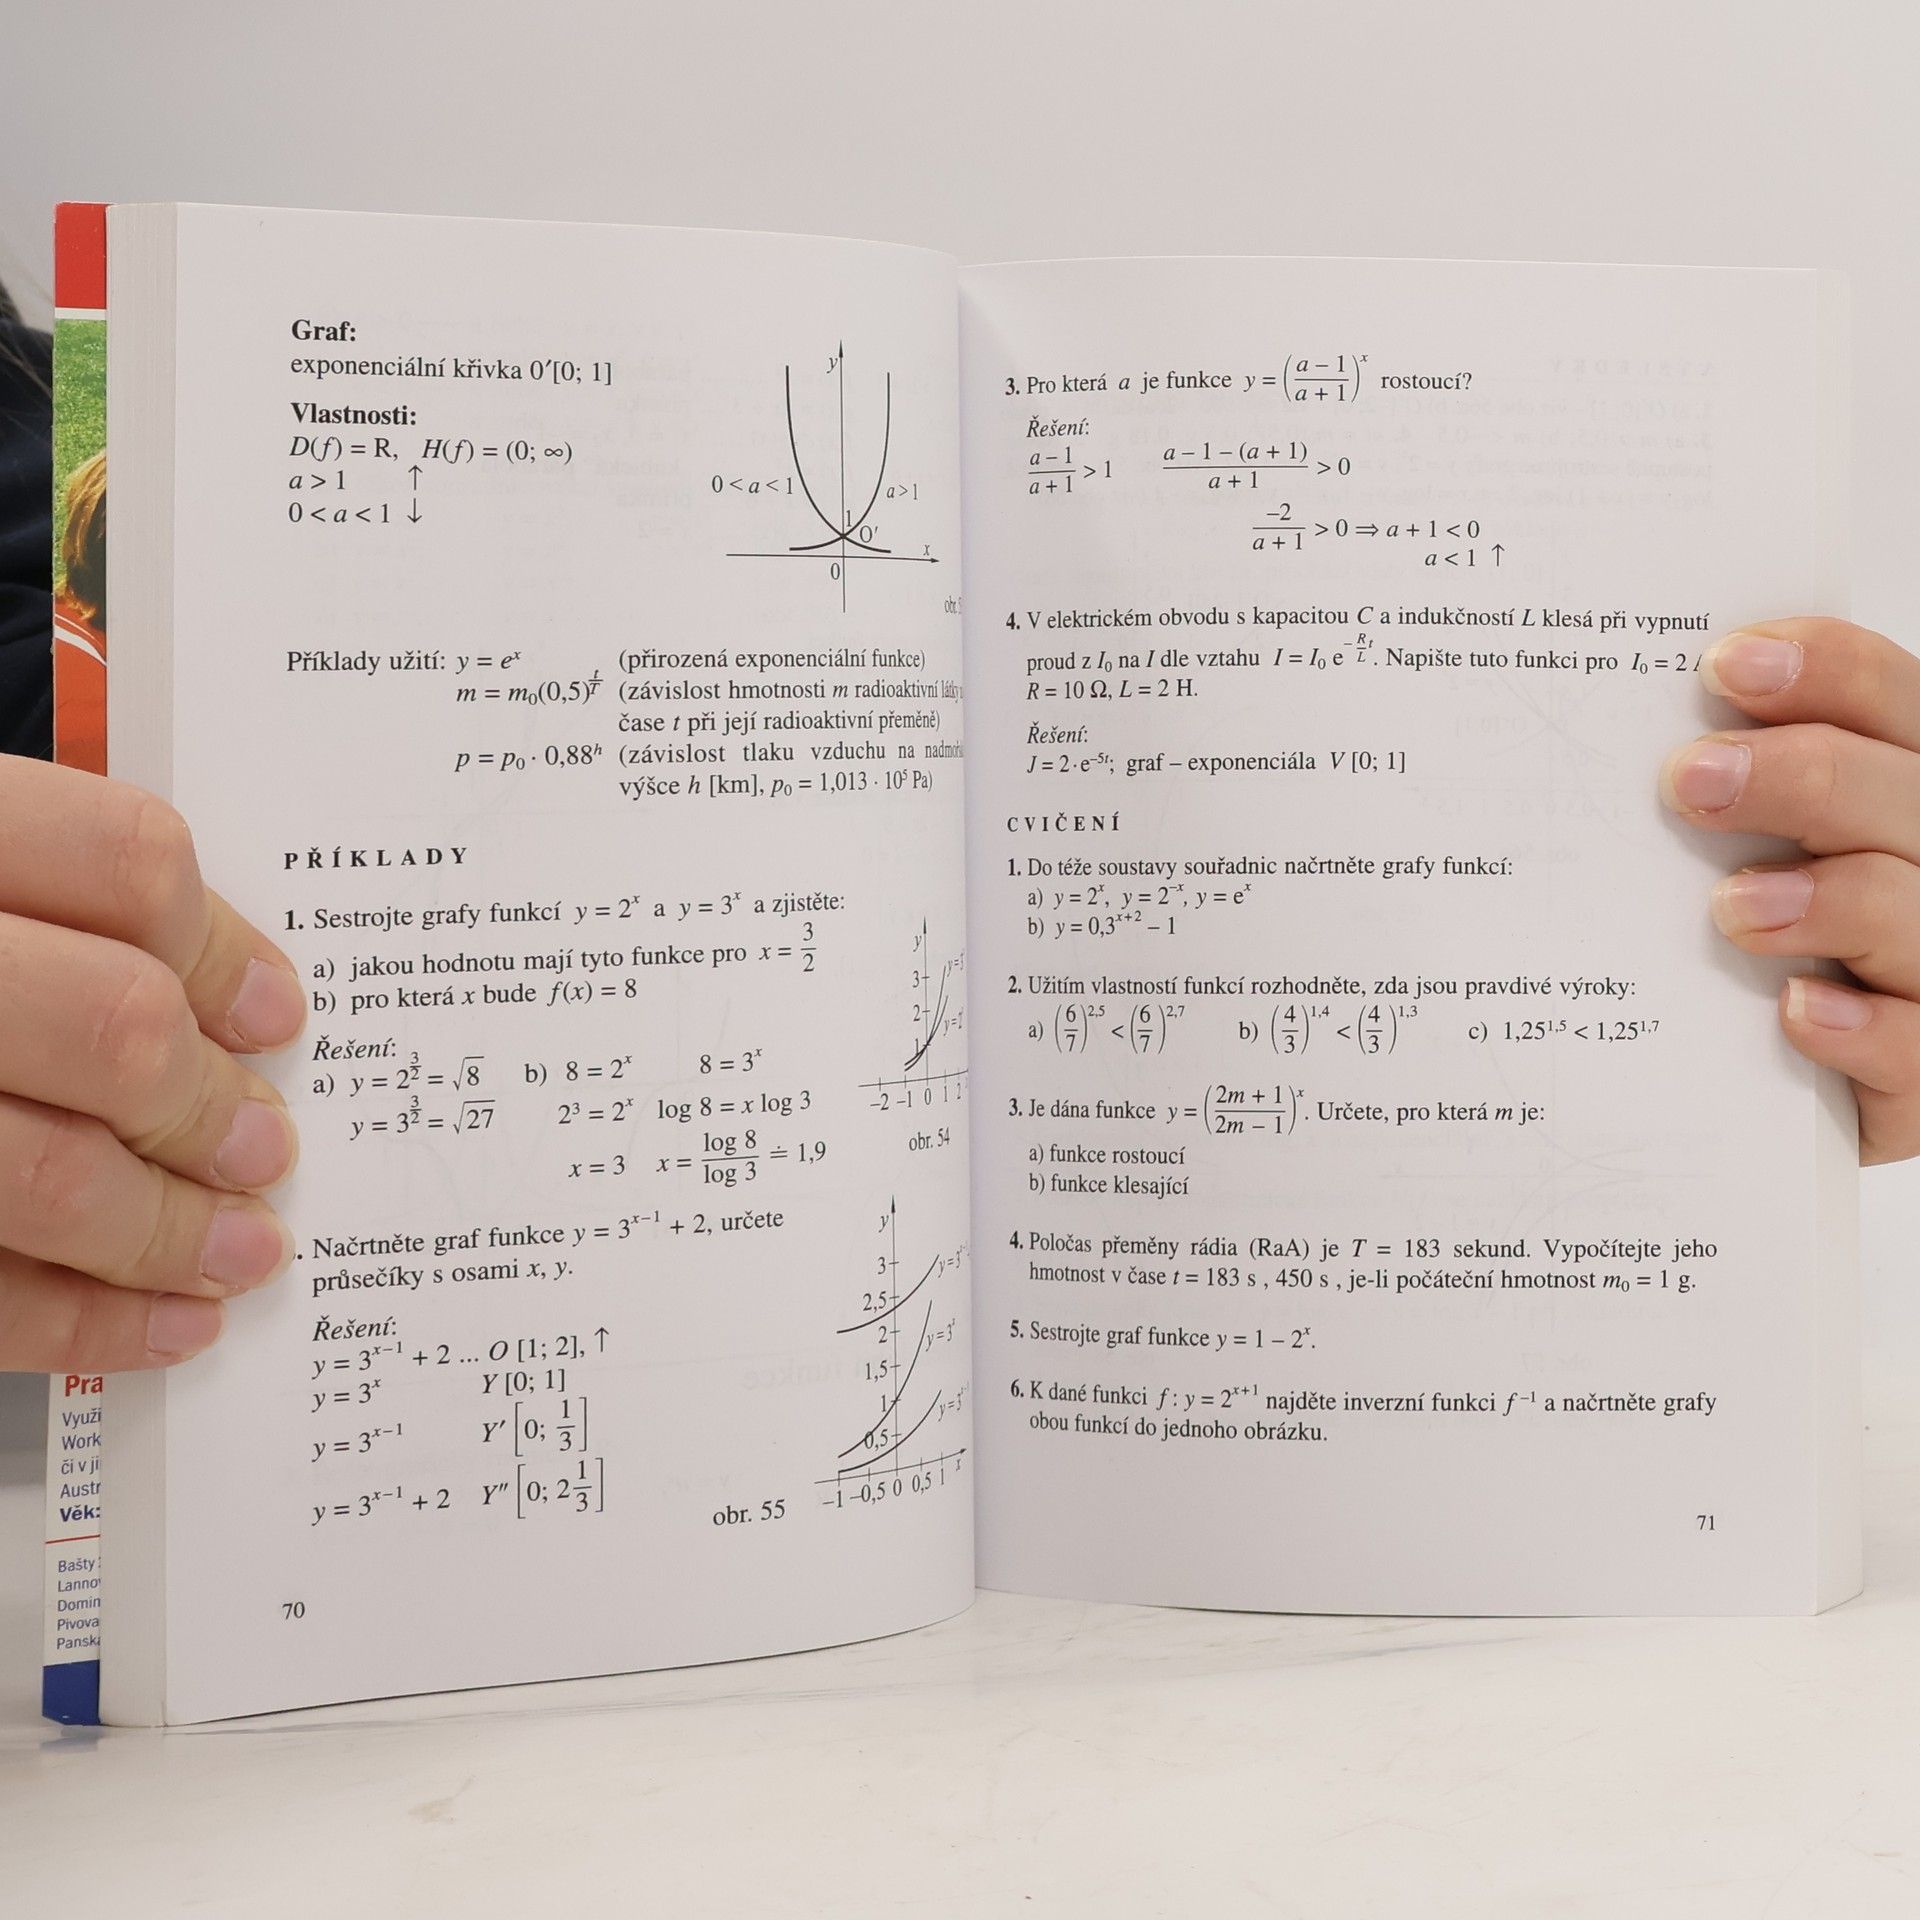 Graf:
exponenciální křivka 0′[0; 1]
Vlastnosti:
D(f) = R, H(f) = (0; ∞)
a > 1 ↑
0 < a < 1 ↓
y
0 < a < 1
a > 1
1
O′
x
0
Příklady užití: y = e^x (přirozená exponenciální funkce)
m = m₀(0,5)^(t/T) (závislost hmotnosti m radioaktivní
čase t při její radioaktivní přeměně)
p = p₀ · 0,88^h (závislost tlaku vzduchu na
výšce h [km], p₀ = 1,013 · 10⁵ Pa)
PŘÍKLADY
1. Sestrojte grafy funkcí y = 2^x a y = 3^x a zjistěte:
a) jakou hodnotu mají tyto funkce pro x = 3/2
b) pro která x bude f(x) = 8
Řešení:
a) y = 2^(3/2) = √8 b) 8 = 2^x 8 = 3^x
y = 3^(3/2) = √27 2³ = 2^x log 8 = x log 3
x = 3 x = log 8/log 3 ≐ 1,9
y
3
2
1
–2 –1 0 1 2
obr. 54
. Načrtněte graf funkce y = 3^(x–1) + 2, určete
průsečíky s osami x, y.
Řešení:
y = 3^(x–1) + 2 ... O [1; 2], ↑
y = 3^x Y [0; 1]
y = 3^(x–1) Y′ [0; 1/3]
y = 3^(x–1) + 2 Y″ [0; 2 1/3]
y
3
2,5
2
y = 3^x
1,5
1
0,5
–1 –0,5 0 0,5 1 x
obr. 55
70
3. Pro která a je funkce y = ((a – 1)/(a + 1))^x rostoucí?
Řešení:
(a – 1)/(a + 1) > 1 (a – 1 – (a + 1))/(a + 1) > 0
–2/(a + 1) > 0 ⇒ a + 1 < 0
a < 1 ↑
4. V elektrickém obvodu s kapacitou C a indukčností L klesá při vypnutí
proud z I₀ na I dle vztahu I = I₀ e^(–(R/L)t). Napište tuto funkci pro I₀ = 2
R = 10 Ω, L = 2 H.
Řešení:
J = 2·e^(–5t); graf – exponenciála V [0; 1]
CVIČENÍ
1. Do téže soustavy souřadnic načrtněte grafy funkcí:
a) y = 2^x, y = 2^(–x), y = e^x
b) y = 0,3^(x+2) – 1
2. Užitím vlastností funkcí rozhodněte, zda jsou pravdivé výroky:
a) (6/7)^2,5 < (6/7)^2,7 b) (4/3)^1,4 < (4/3)^1,3 c) 1,25^1,5 < 1,25^1,7
3. Je dána funkce y = ((2m + 1)/(2m – 1))^x. Určete, pro která m je:
a) funkce rostoucí
b) funkce klesající
4. Poločas přeměny rádia (RaA) je T = 183 sekund. Vypočítejte jeho
hmotnost v čase t = 183 s , 450 s , je-li počáteční hmotnost m₀ = 1 g.
5. Sestrojte graf funkce y = 1 – 2^x.
6. K dané funkci f : y = 2^(x+1) najděte inverzní funkci f⁻¹ a načrtněte grafy
obou funkcí do jednoho obrázku.
71
Pra
Využi
Work
či v ji
Austr
Věk:
Bašty
Lanno
Domin
Pivova
Panska